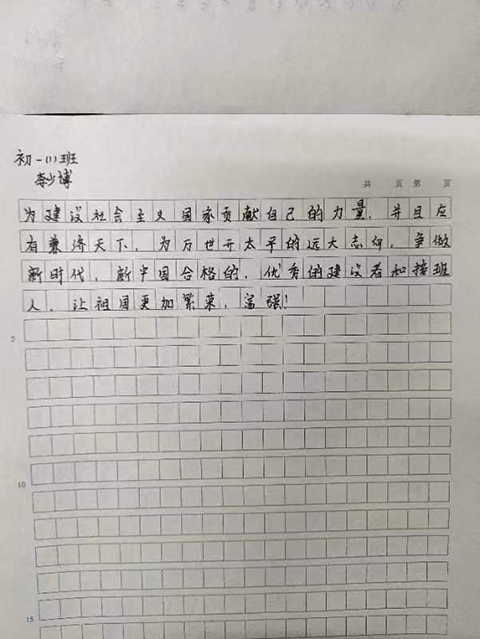 初一(1)班
李少博
共 页 第 页
为建设社会主义国家贡献自己的力量，并且应
有兼济天下，为万世开太平的远大志向，争做
新时代，新中国合格的，优秀的建设者和接班
人，让祖国更加繁荣，富强！
5
10
15